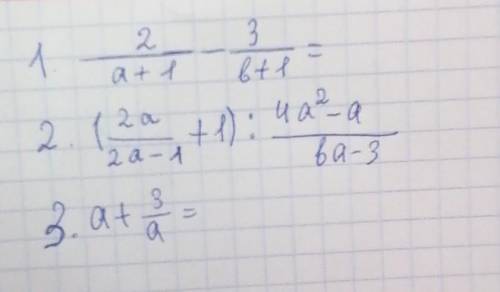 1. 2/(a+1) − 3/(b+1) =
2. (2a/(2a−1) + 1) : (4a²−a)/(6a−3)
3. a + 3/a =